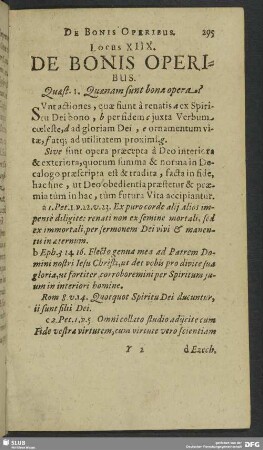 DE BONIS OPERIBUS. 295
LOCUS XIIX.
DE BONIS OPERI-
BUS.
Quæst. 1. Quænam sunt bona opera?
SUnt actiones, quæ fiunt à renatis a ex Spiri-
tu Dei bono, b per fidem c juxta Verbum
cœleste, d ad gloriam Dei, e ornamentum vi-
tæ, f atq; ad utilitatem proximi. g
Sive sunt opera præcepta à Deo interiora
& exteriora, quorum summa & norma in De-
calogo præscripta est & tradita, facta in fide,
hac fine, ut Deo obedientia præstetur & præ-
mia tùm in hac, tùm futura Vita accipiantur.
a 1. Pet. 1. v. 22. v. 23. Ex puro corde alij alios im-
pensè diligite: renati non ex semine mortali, sed
ex immortali, per sermonem Dei vivi & manen-
tis in æternum.
b Eph. 3. 14. 16. Flecto genua mea ad Patrem Do-
mini nostri Iesu Christi, ut det vobis pro divite sua
gloria, ut fortiter corroboremini per Spiritum su-
um in interiori homine.
Rom 8. v. 14. Quotquot Spiritu Dei ducuntur,
ii sunt filii Dei.
c 2. Pet. 1. v. 5. Omni collato studio adjicite cum
Fide vestra virtutem, cum virtute vero scientiam
Y 2 d Ezech.
SLUB
DFG